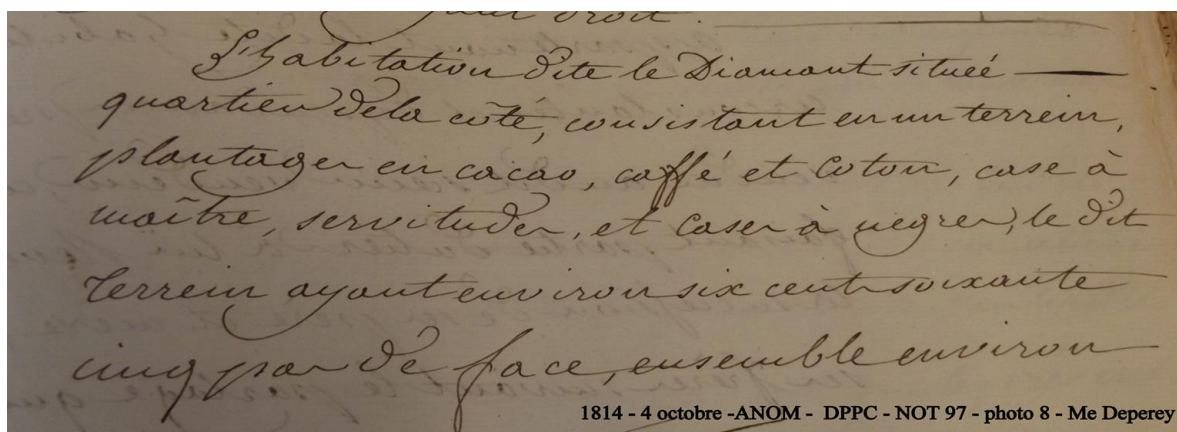 droit.
L'habitation dite le Diamant située
quartier dela côté, consistant en un terrein,
plantages en cacao, caffé et coton, case à
maître, servitudes, et cases à negres, le dit
terrein ayant environ six cent soixante
cinq pas de face, ensemble environ
1814 - 4 octobre -ANOM - DPPC - NOT 97 - photo 8 - Me Deperey